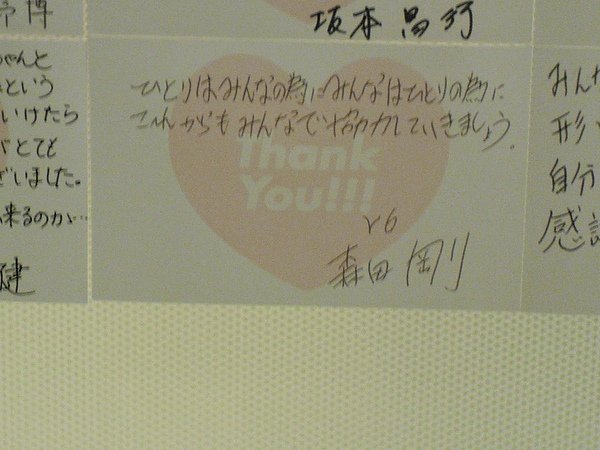 坂本昌行
ひとりはみんなの為に みんなはひとりの為に
これからもみんなで協力していきましょう.
Thank
You!!!
V6
森田剛
ゃんと
という
いけたら
とても
ざいました。
来るのが…
健
みん
形
自分
感